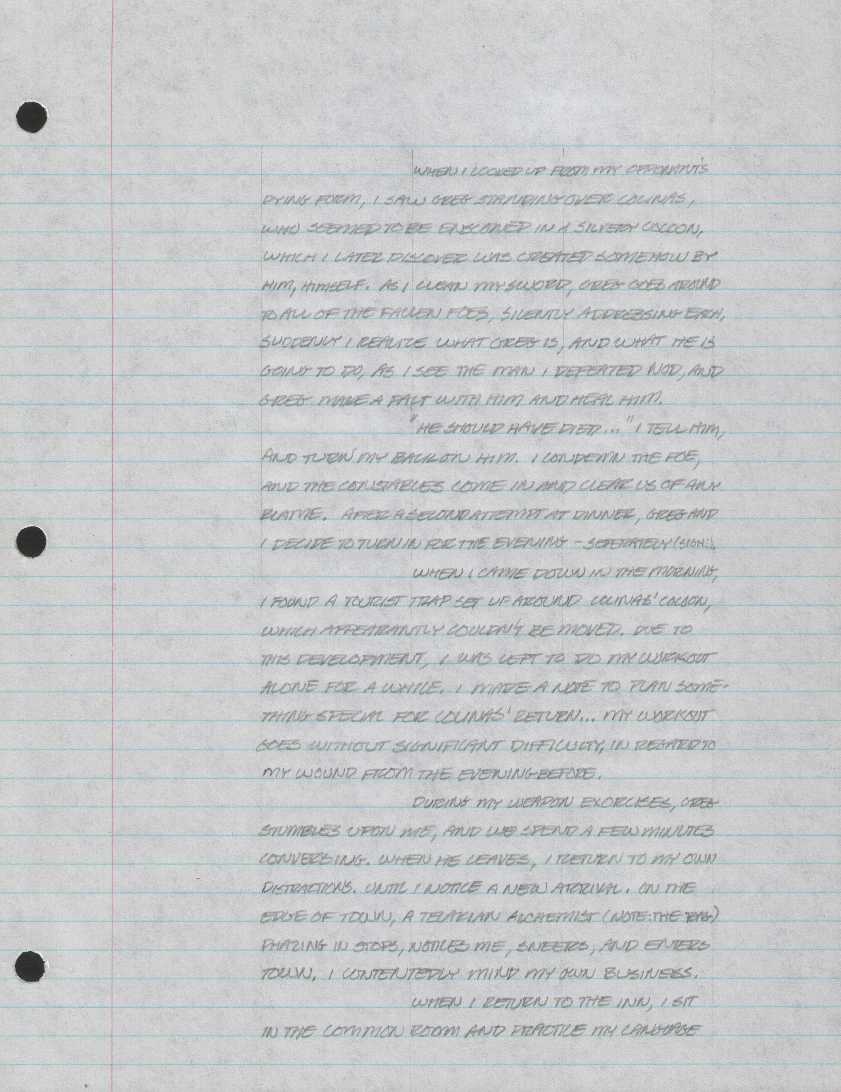 WHEN I LOOKED UP FROM MY OPPONANT'S
DYING FORM, I SAW GREG STANDING OVER COLINAS,
WHO SEEMED TO BE ENSCONED IN A SILVERY COCOON,
WHICH I LATER DISCOVER WAS CREATED SOMEHOW BY
HIM, HIMSELF. AS I CLEAN MY SWORD, GREG GOES AROUND
TO ALL OF THE FALLEN FOES, SILENTLY ADDRESSING EACH,
SUDDENLY I REALIZE WHAT GREG IS, AND WHAT HE IS
GOING TO DO, AS I SEE THE MAN I DEFEATED NOD, AND
GREG MAKE A PACT WITH HIM AND HEAL HIM.
"HE SHOULD HAVE DIED..." I TELL HIM,
AND TURN MY BACK ON HIM. I CONDEMN THE FOE,
AND THE CONSTABLES COME IN AND CLEAR US OF ANY
BLAME. AFTER A SECOND ATTEMPT AT DINNER, GREG AND
I DECIDE TO TURN IN FOR THE EVENING - SEPERATELY (SIGH.).
WHEN I CAME DOWN IN THE MORNING,
I FOUND A TOURIST TRAP SET UP AROUND COLINAS' COCOON,
WHICH APPEARANTLY COULDN'T BE MOVED. DUE TO
THIS DEVELOPMENT, I WAS LEFT TO DO MY WORKOUT
ALONE FOR A WHILE. I MADE A NOTE TO PLAN SOME-
THING SPECIAL FOR COLINAS' RETURN... MY WORKOUT
GOES WITHOUT SIGNIFICANT DIFFICULTY, IN REGARD TO
MY WOUND FROM THE EVENING BEFORE.
DURING MY WEAPON EXORCISES, GREG
STUMBLES UPON ME, AND WE SPEND A FEW MINUTES
CONVERSING. WHEN HE LEAVES, I RETURN TO MY OWN
DISTRACTIONS. UNTIL I NOTICE A NEW ARRIVAL. ON THE
EDGE OF TOWN, A ALCHEMIST (NOTE: THE
PHAZING IN STOPS, NOTICES ME, SNEERS, AND ENTERS
TOWN. I CONTENTEDLY MIND MY OWN BUSINESS.
WHEN I RETURN TO THE INN, I SIT
IN THE COMMON ROOM AND PRACTICE MY LANGUAGE